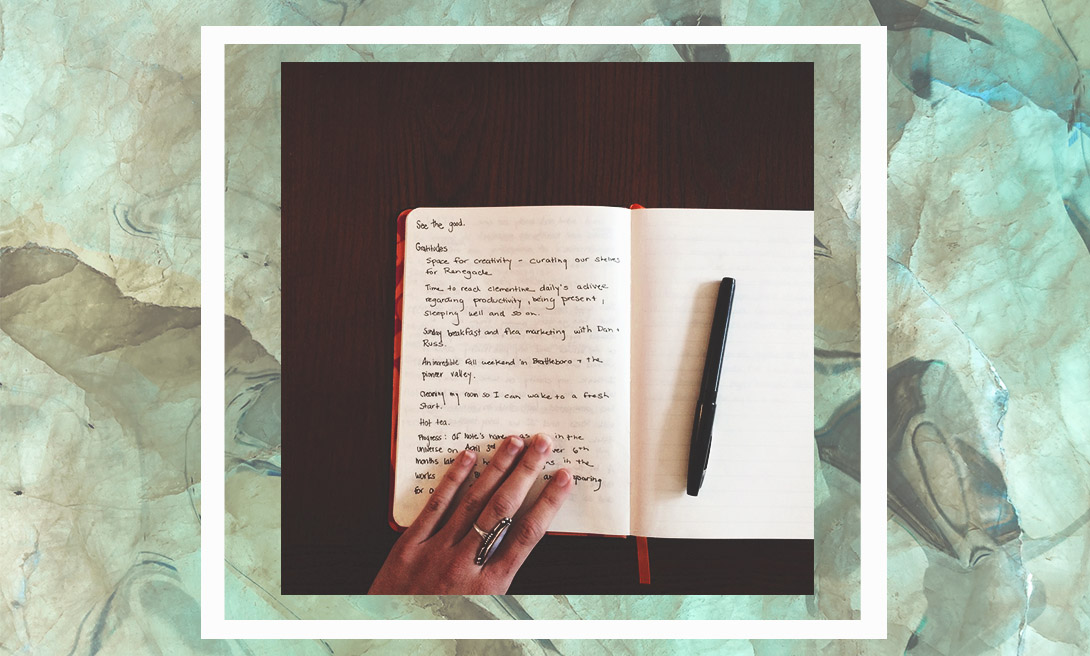 See the good.
Gratitudes
Space for creativity - curating our shelves
for Renegade
Time to read clementine daily's advice
regarding productivity, being present,
sleeping well and so on.
Sunday breakfast and flea marketing with Dan +
Russ.
An incredible fall weekend in Brattleboro + the
pioneer valley.
Cleaning my room so I can wake to a fresh
start.
Hot tea.
Progress: Of Note's name as in the
universe on April 3rd 6th
months in the
works
for a